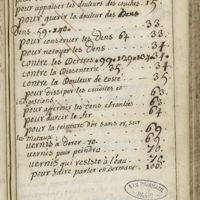 pour appaiser les douleurs des couches. 15
pour guerir la douleur des dens
Dens. 59. 33.
pour conserver les Dens 64. 33.
pour nettoyer les Dens. 34.
contre les Dertres
contre la Dissenterie. 35. 34.
contre la Douleur de costé 35.
pour dissiper les cruditez et
indigestions.
pour affermir les dens esbranlées 63.
pour durcir le fer 64.
pour la teinture d'or sans or, sur
les metaux. 69.
vernis a Dorer. 70.
vernis pour peindre 70.
vernis qui resiste à l'eau 70.
pour faire parler en dormant 100.